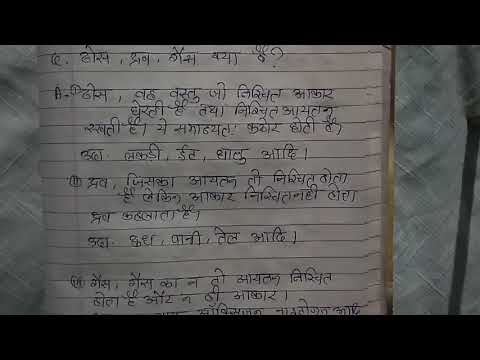 Q. ठोस, द्रव, गैस क्या है?
A-① ठोस, वह वस्तु जो निश्चित आकार
घेरती है तथा निश्चित आयतन
रखती है। ये सामान्यतः कठोर होती है।
उदा. लकड़ी, ईंट, धातु आदि।
⑪ द्रव, जिसका आयतन तो निश्चित होता
है लेकिन आकार निश्चित नहीं होता
द्रव कहलाता है।
उदा. दूध, पानी, तेल आदि।
गैस, गैस का न तो आयतन निश्चित
होता है और न ही आकार।
ऑक्सीजन, नाइट्रोजन आदि